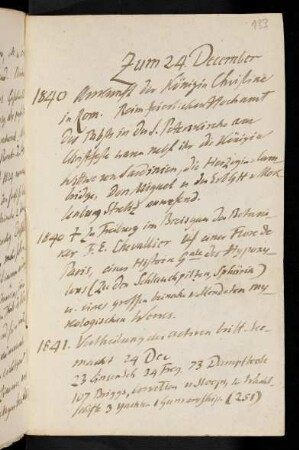 193
Zum 24 December
1840 Ankunft der Königin Christine
in Rom. Beim feierlichen Hochamt
des Pabstes in der S. Peterskirche am
Christfeste waren nebst ihr die Königin
Wittwe von Sardinien, die Herzogin Cam
bridge, Don Miguel u der Erbghz v Meck
lenburg Strelitz anwesend.
1840 † zu Freiburg im Breisgau der Botani
ker F. F. Chevallier Vf einer Flore de
Paris, einer Histoire Gale des Hypoxy
lons (zu den Schlauchpilzen, Sphärien)
u. eines großen beinahe vollendeten my
kologischen Werkes.
1841. Vertheilung der activen britt. See
macht 24 Dec
23 Liniensch 34 Freg. 73 Dampfboote
107 Briggs, Corvetten u Sloops,
3 Yachten 1 (251)